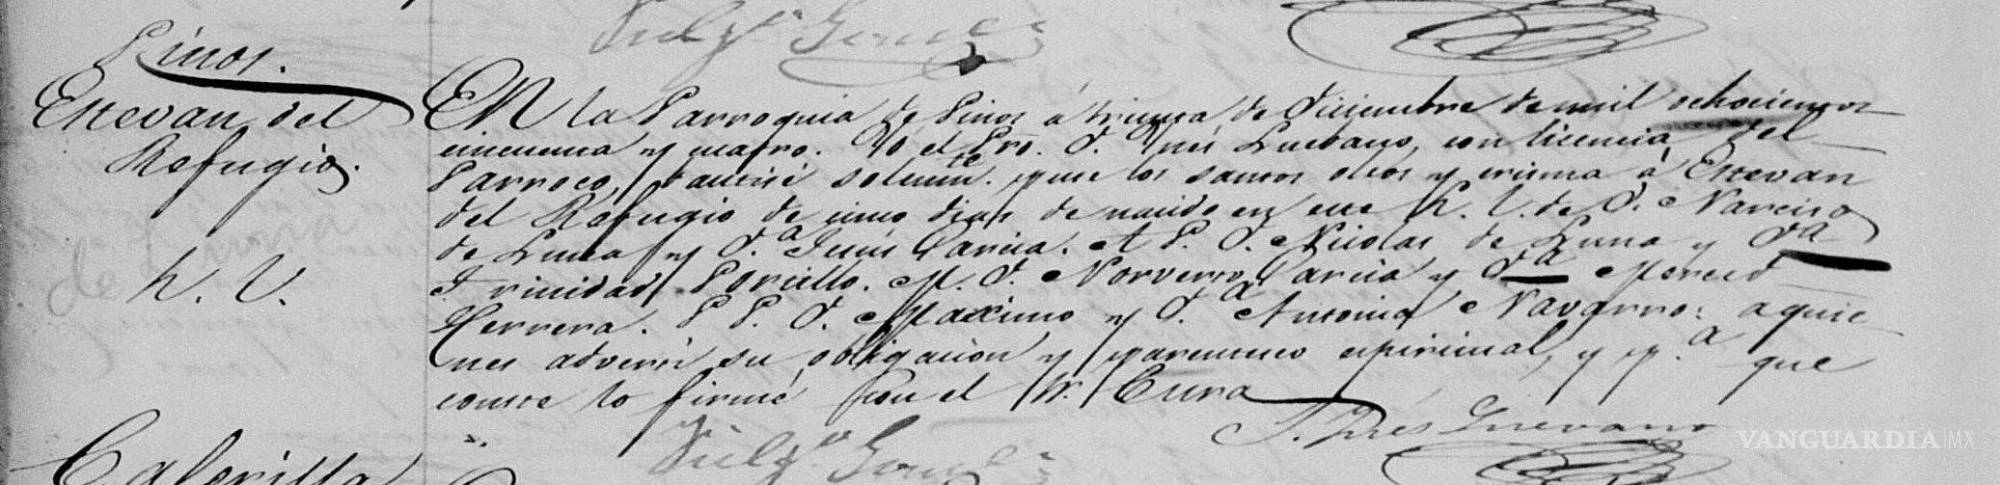 Fulg.º Gomez
Pinos.
Estevan del
Refugio.
h. V.
de Luna
EN la Parroquia de Pinos á treinta de Diciembre de mil ochocientos
cincuenta y cuatro. Yó el Pro. D. Ynés Luebano, con licencia del
Parroco, bautisé solemte. puse los santos oleos y crisma á Estevan
del Refugio de cinco dias de nacido en esta h. V. de D. Narciso
de Luna y D.ª Jesus Garcia. A P. D. Nicolas de Luna y Dª
Trinidad Portillo. M. D. Norverto Garcia y Dª Merced
Herrera. P P. D. Maximo y D.ª Antonia Navarro: a quie
nes adverti su obligacion y parentesco espiritual, y p.ª que
conste lo firmé con el Sr. Cura
J. Ynés Luevano
Fulg.º Gomez
VANGUARDIA MX
Calerilla